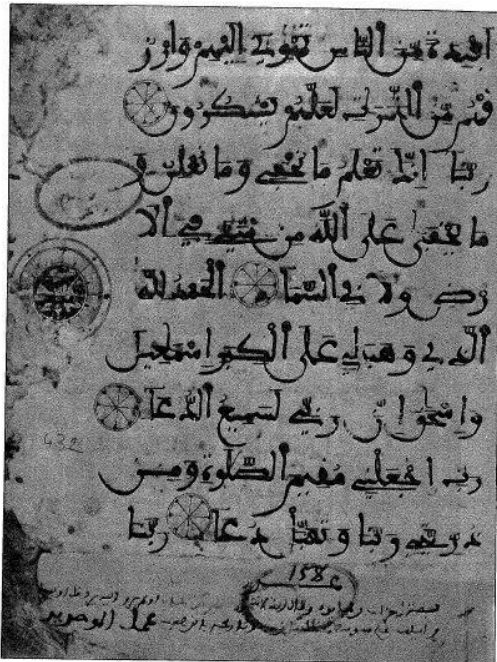 افئدة من الناس تهوي اليهم وارز
قهم من الثمرات لعلهم يشكرون
ربنا انك تعلم ما نخفي وما نعلن و
ما يخفى على الله من شيء في الا
رض ولا في السماء الحمد لله
الذي وهب لي على الكبر اسمعيل
واسحق ان ربي لسميع الدعاء
رب اجعلني مقيم الصلوة ومن
ذريتي ربنا وتقبل دعاء ربنا
432
158